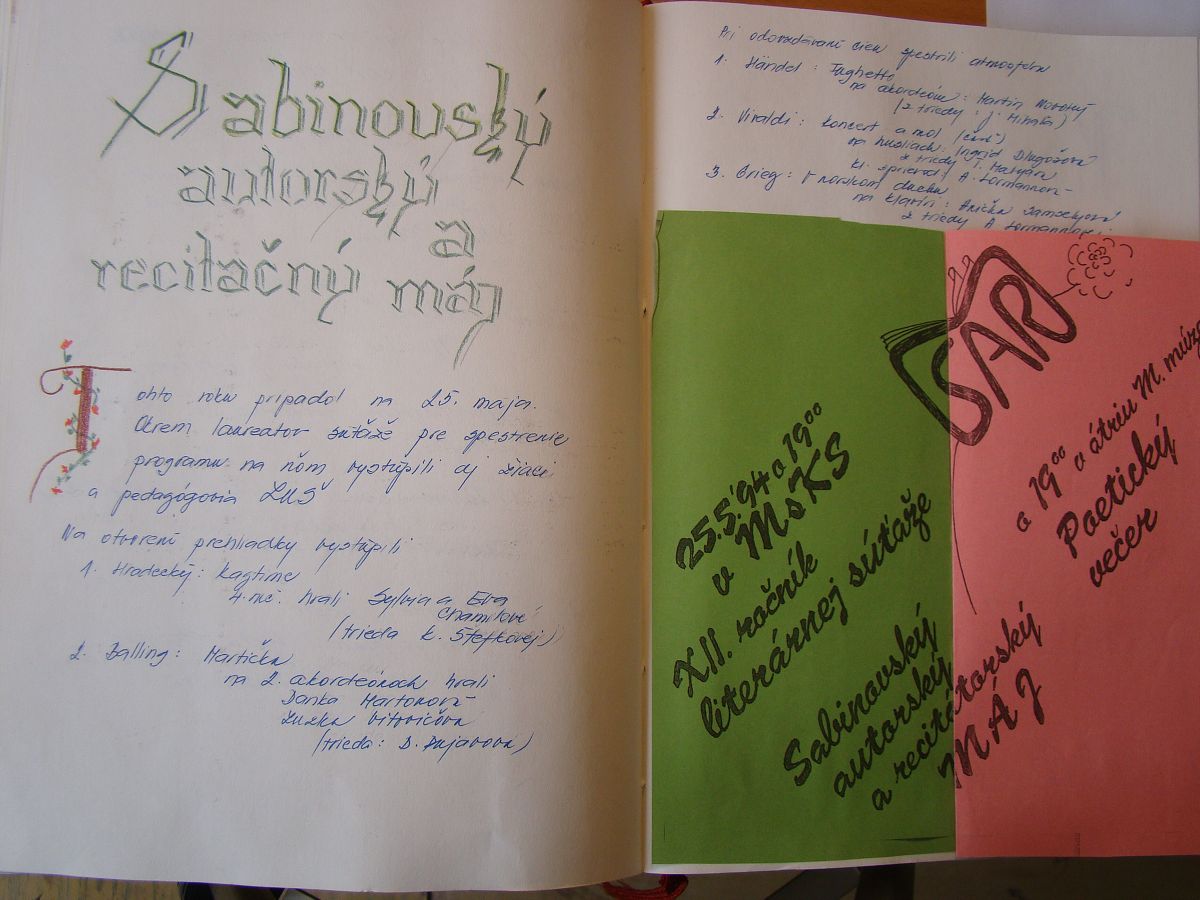 Sabinouský
autorský
a
recitačný máj
Tohto roku pripadol na 25. mája.
Okrem laureatov súťaže pre spestrenie
programu na ňom vystúpili aj žiaci
a pedagógovia ZUŠ
Na otvorení prehliadky vystúpili
1. Hrodecký: Ragtime
4. hrali Sylvia a Eva
(trieda K. Štefkovej)
2. Balling: Martička
na 2. akordeónoch hrali
Danka Martonová
Zuzka Vitkovičová
(trieda: D. Dujavová)
Pri odovzdávaní cien spestrili atmosféru
1. Händel: Fughetto
na akordeóne: Martin Novotný
(z triedy: J. Mihaľa)
2. Vivaldi: Koncert a mol (časť)
na husliach: Ingrid Dlugošová
z triedy
kl. sprievod A.
3. Grieg: V norskom duchu
na klavíri: Anička
z triedy A.
SAR
25.5.'94 o 19⁰⁰
v MsKS
XII. ročník
literárnej súťaže
Sabinovský
autorský
a recitátorský
MÁJ
o 19⁰⁰ v átriu M. múze
Poetický
večer